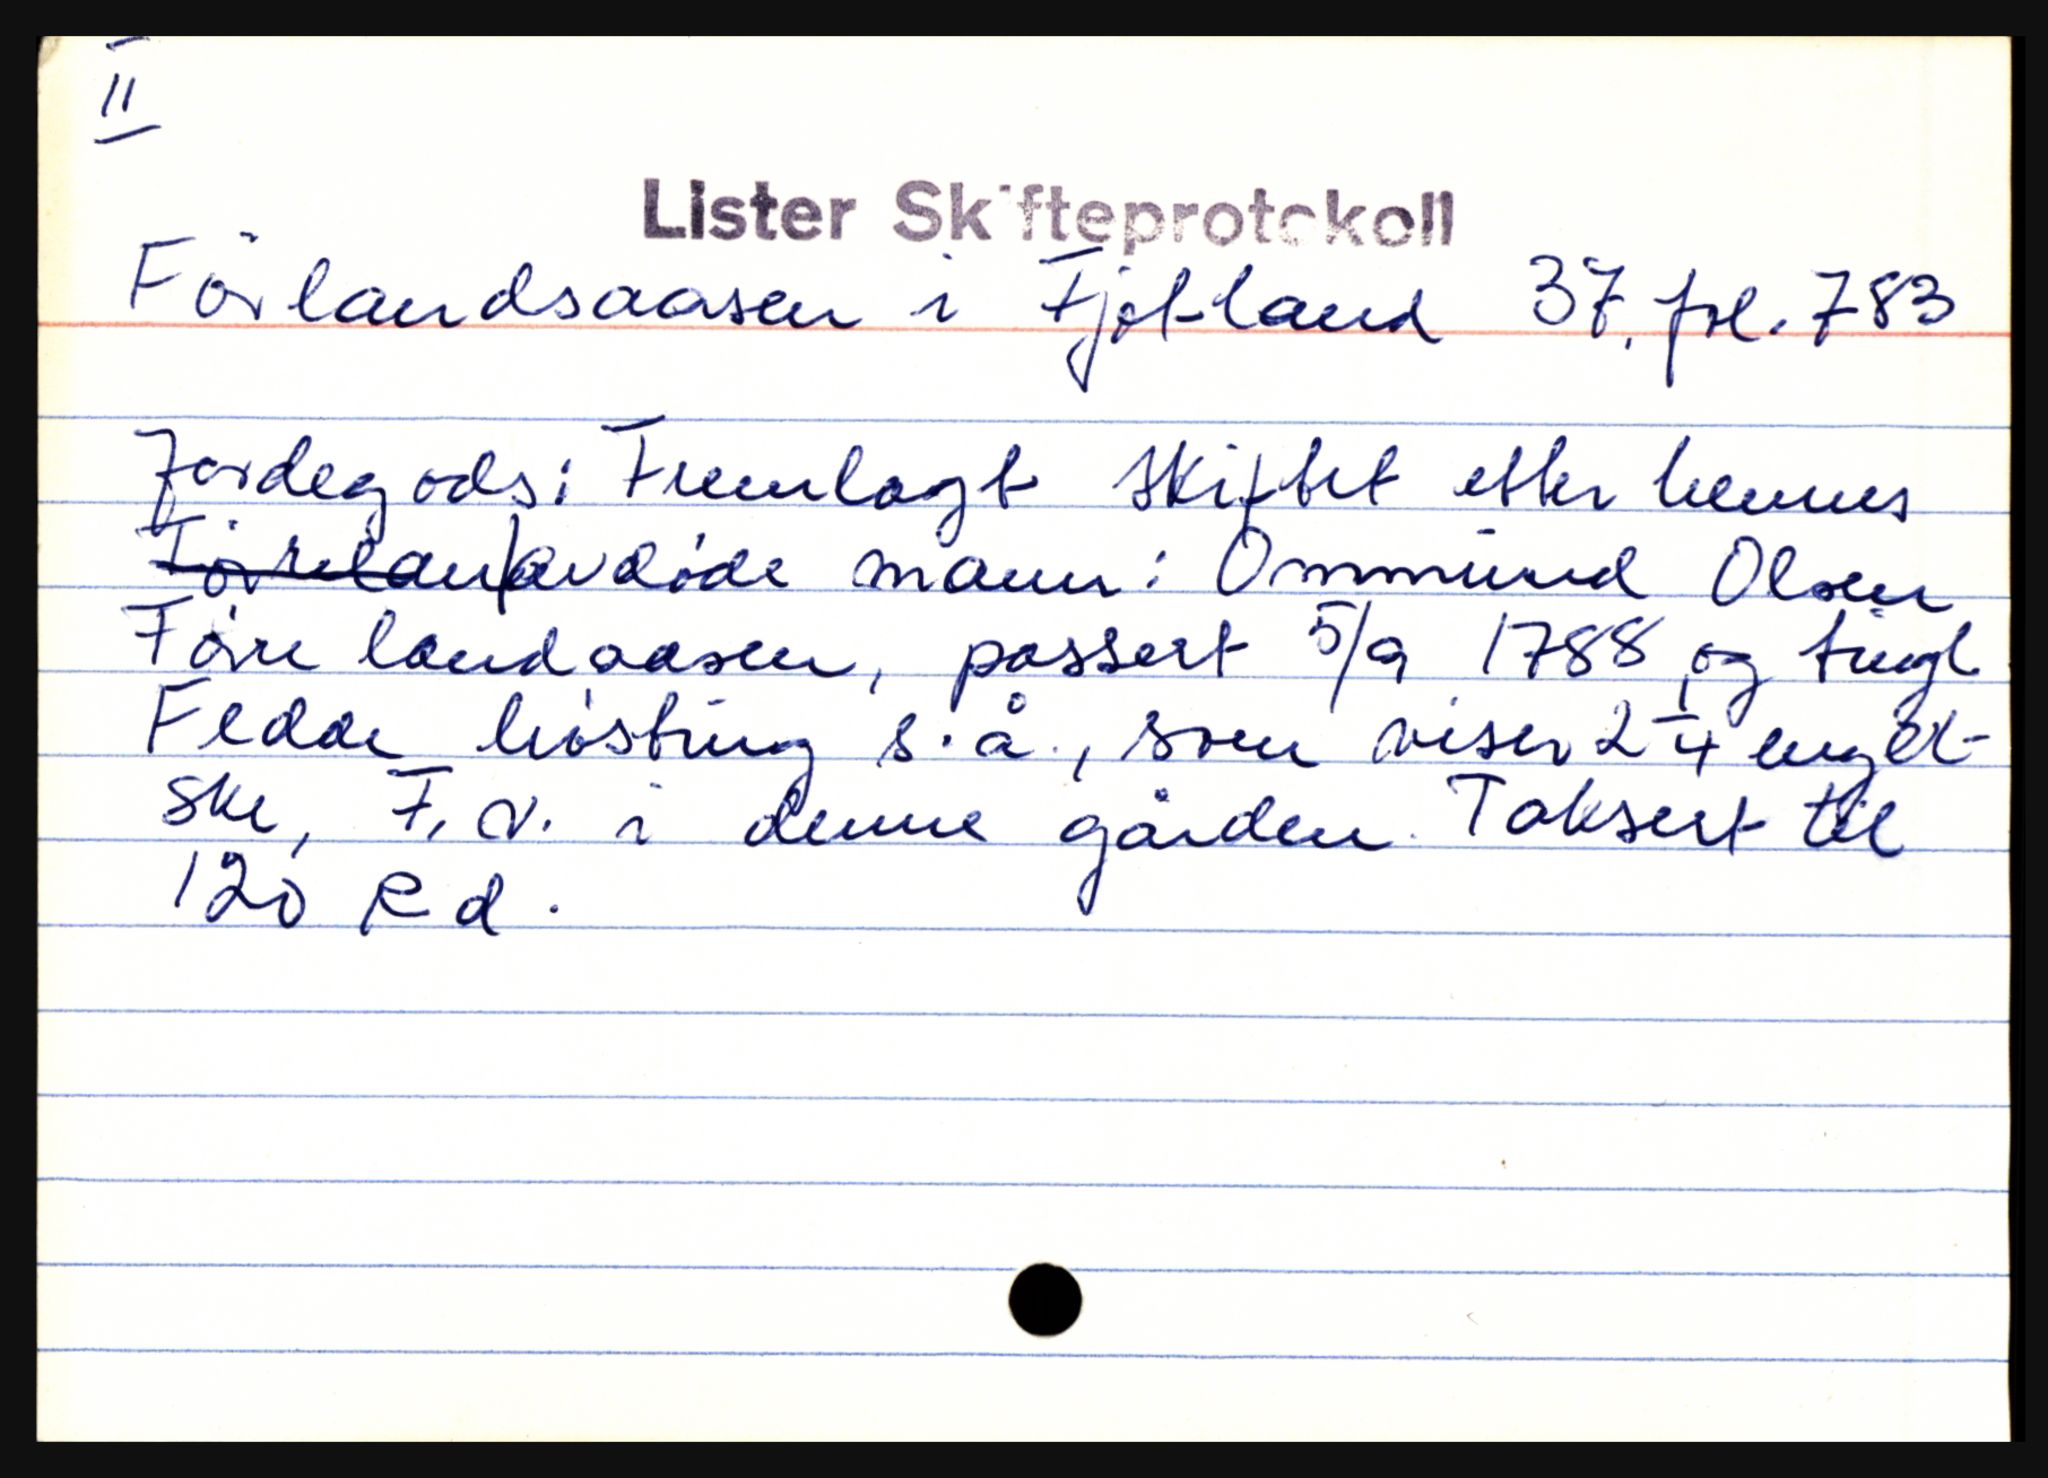 II
Lister Skifteprotokoll
Førlandsaasen i Fjotland 37, fol. 783
Jordegods: Fremlagt skiftet etter hennes
Førrelan avdøde mann: Ommund Olsen
Førrelandaasen, passert 5/9 1788, og tingl
Fedde høsting s.å., som viser 2 1/4 engel-
ske, F. v. i denne gården. Taksert til
120 Rd.